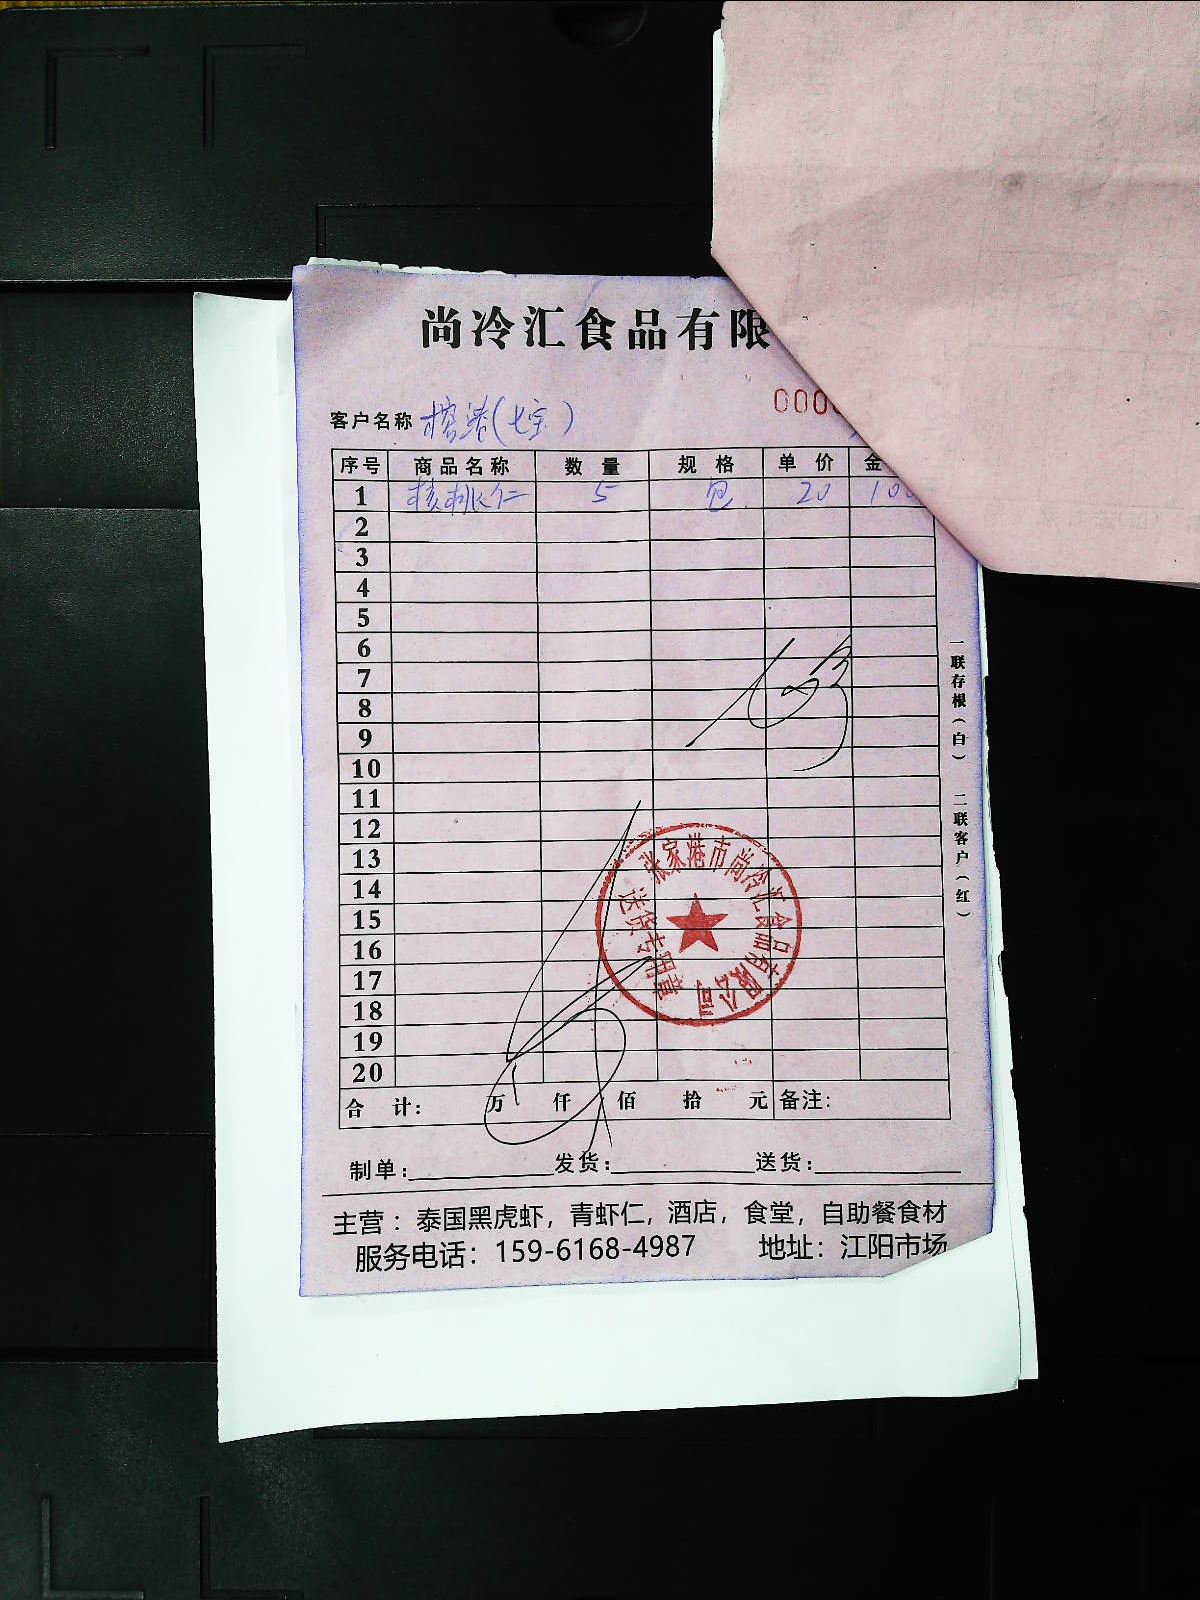 尚冷汇食品有限
000
客户名称 榕港(七宝)
序号 商品名称 数量 规格 单价 金
1 核桃仁 5 包 20 100
2
3
4
5
6
7
8
9
10
11
12
13
14
15
16
17
18
19
20
合计: 万 仟 佰 拾 元 备注:
制单: 发货: 送货:
主营：泰国黑虎虾，青虾仁，酒店，食堂，自助餐食材
服务电话：159-6168-4987 地址：江阳市场
一联存根(白) 二联客户(红)
张家港市尚冷汇食品有限公司
送货专用章